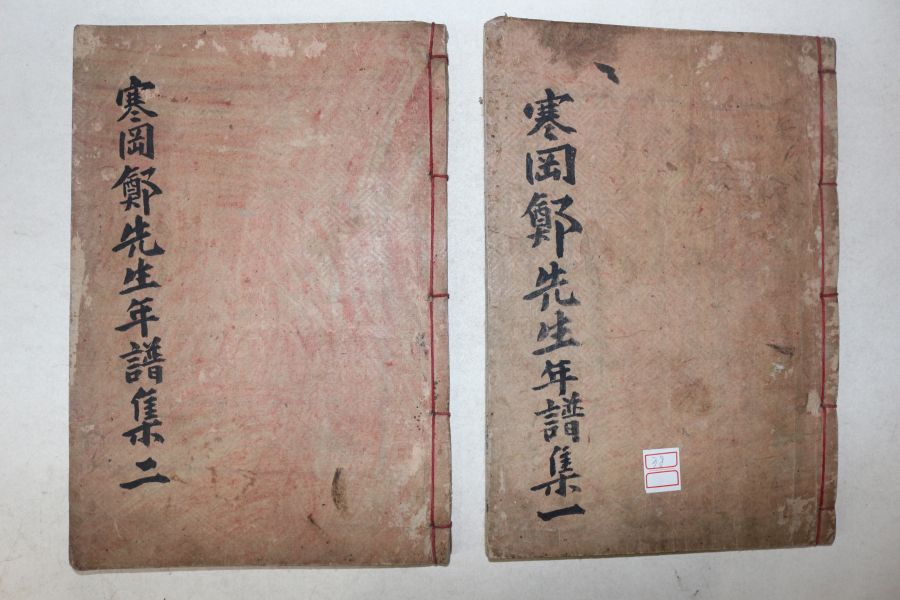 寒岡鄭先生年譜集一
寒岡鄭先生年譜集二